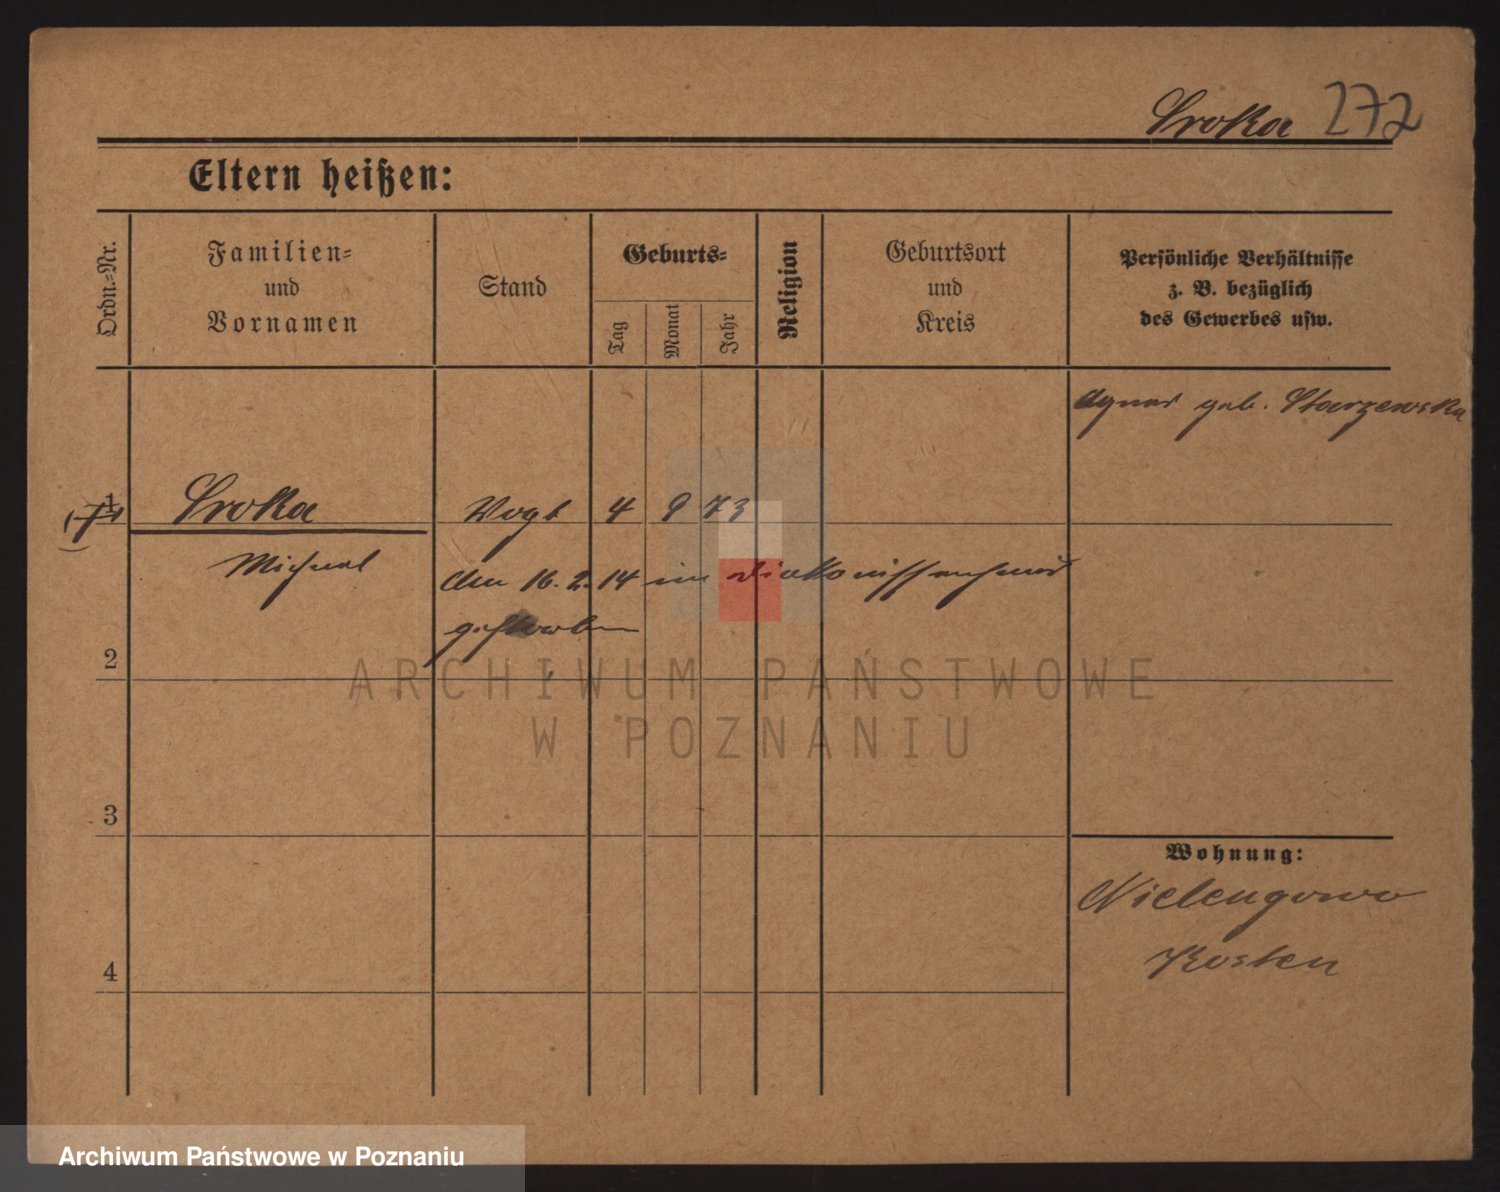 Sroka 272
Eltern heißen:
Ordn.-Nr.
Familien-
und
Vornamen
Stand
Geburts-
Tag
Monat
Jahr
Religion
Geburtsort
und
Kreis
Persönliche Verhältnisse
z. B. bezüglich
des Gewerbes usw.
geb. Starzewska
1 Sroka Vogt 4 9 73
Michael den 16. 2. 14 im Diakonissenhaus
gestorben
2
3
4
Wohnung:
Nielengowo
Kosten
ARCHIWUM PAŃSTWOWE
W POZNANIU
Archiwum Państwowe w Poznaniu